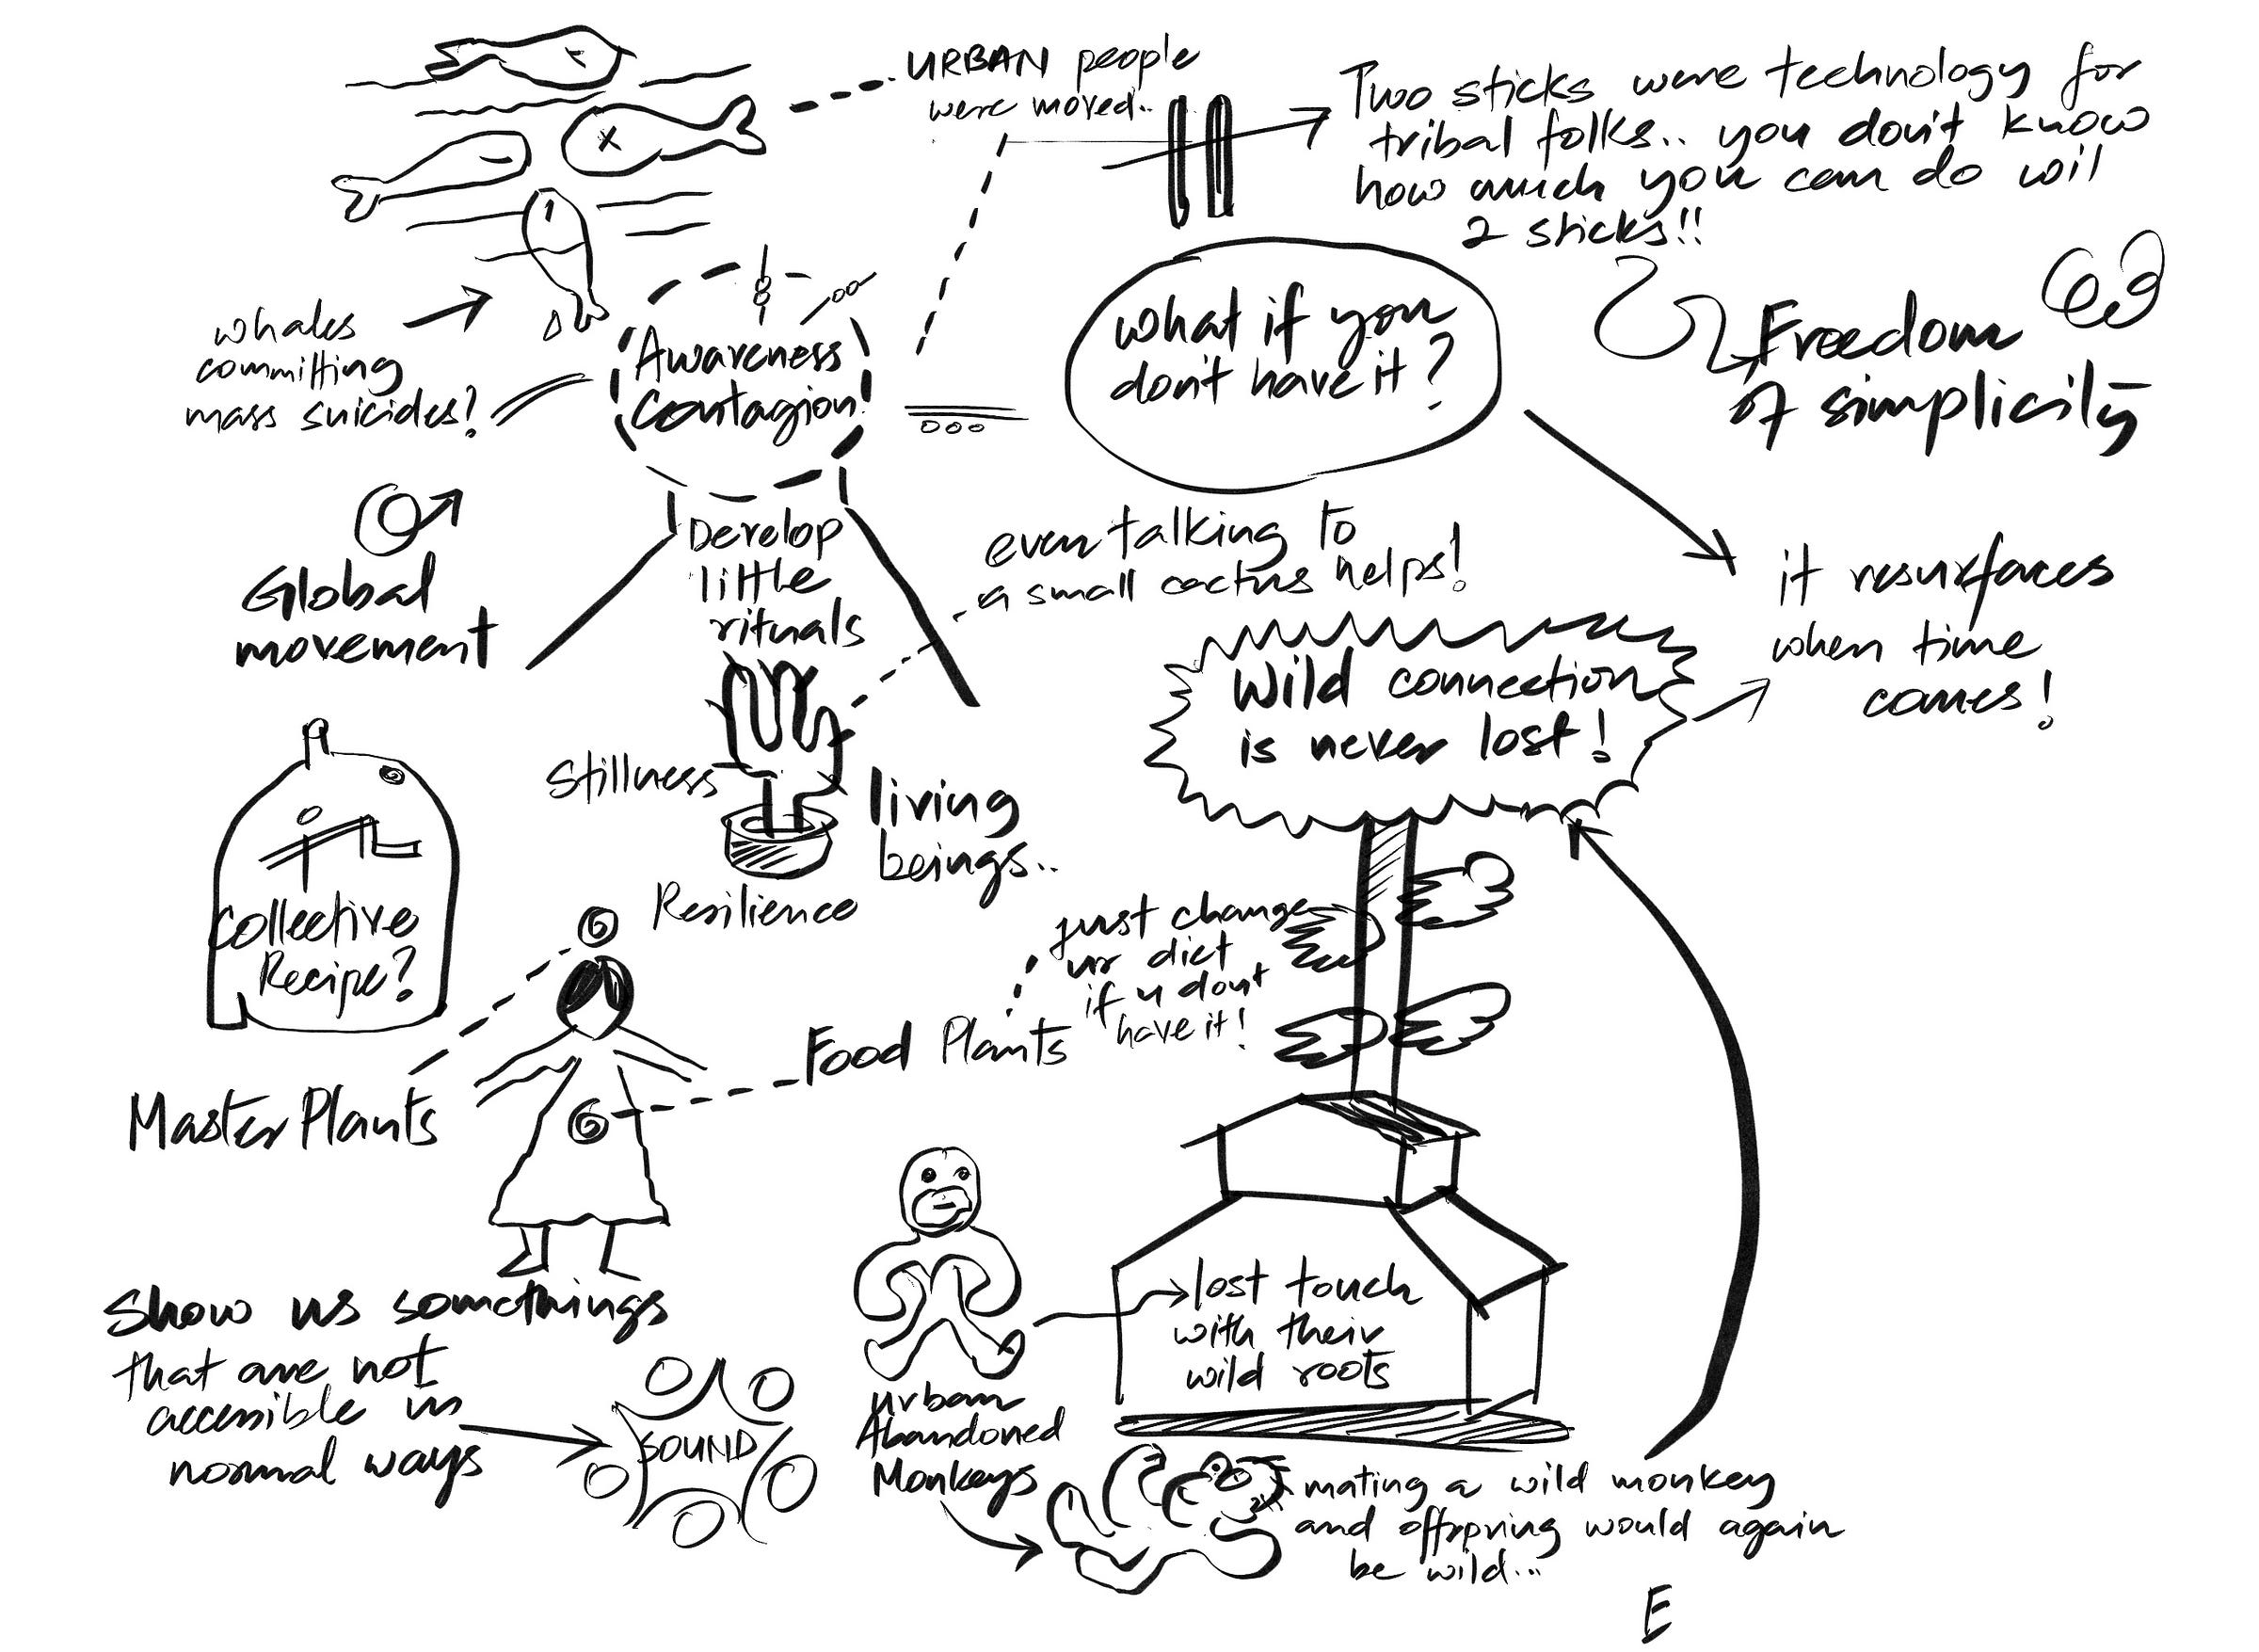 URBAN people
were moved..
Two sticks were technology for
tribal folks.. you don't know
how much you can do wil
2 sticks!!
whales
committing
mass suicides?
Awareness
Contagion!
what if you
don't have it?
Freedom
of simplicity
Global
movement
Develop
little
rituals
even talking to
a small cactus helps!
it resurfaces
when time
comes!
Wild connection
is never lost!
Stillness
living
beings..
Resilience
Collective
Recipe?
just change
ur diet
if u dont
have it!
Food Plants
Master Plants
Show us somethings
that are not
accessible in
normal ways
SOUND
urban
Abandoned
Monkeys
lost touch
with their
wild roots
mating a wild monkey
and offspring would again
be wild...
E